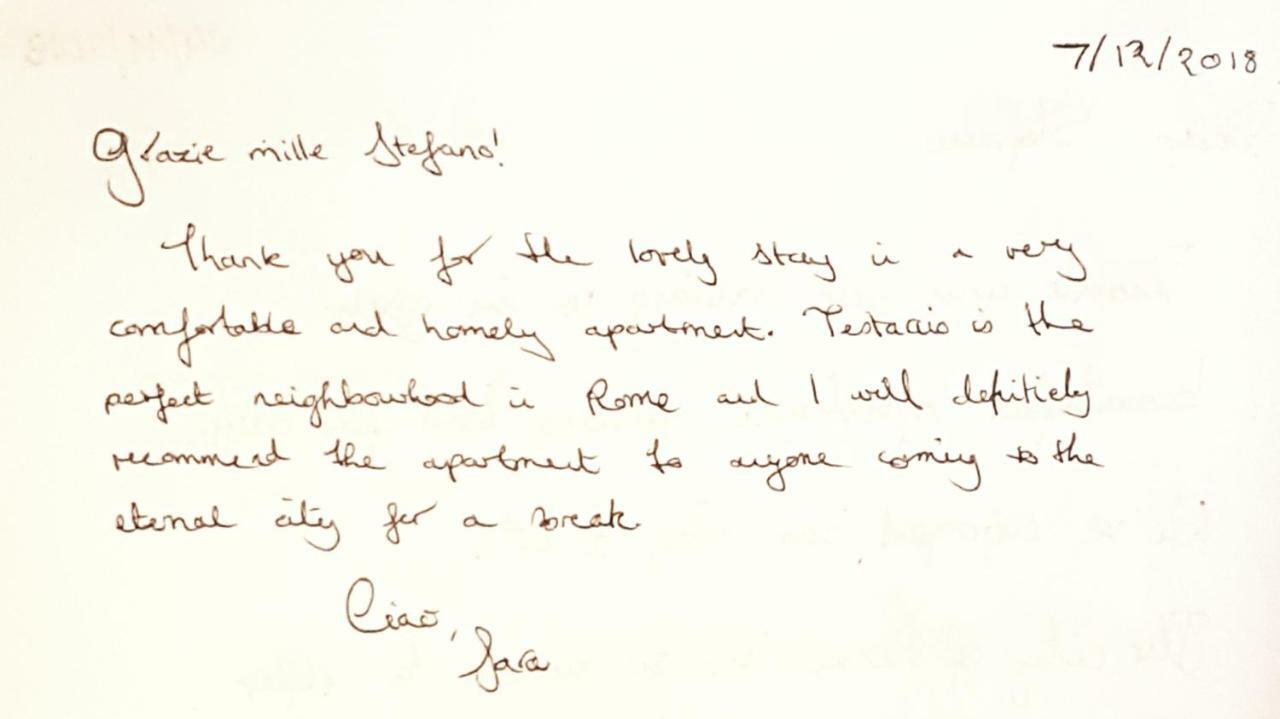 7/12/2018
Grazie mille Stefano!
Thank you for the lovely stay in a very
comfortable and homely apartment. Testaccio is the
perfect neighbourhood in Rome and I will definitely
recommend the apartment to anyone coming to the
eternal city for a break.
Ciao,
Sara